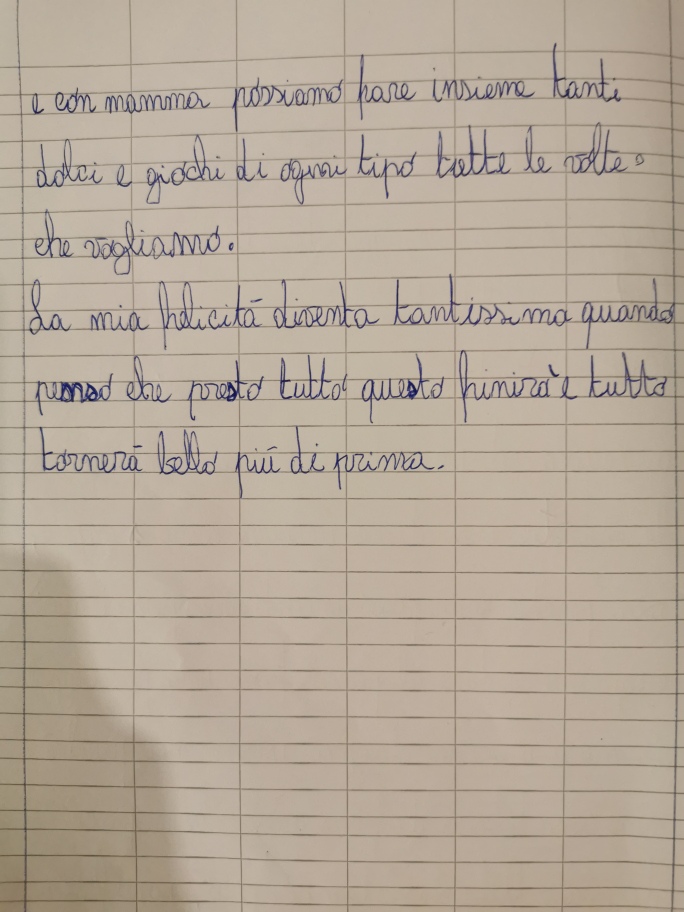 e con mamma possiamo fare insieme tanti
dolci e giochi di ogni tipo tutte le volte
che vogliamo.
La mia felicità diventa tantissima quando
penso che presto tutto questo finirà e tutto
tornerà bello più di prima.